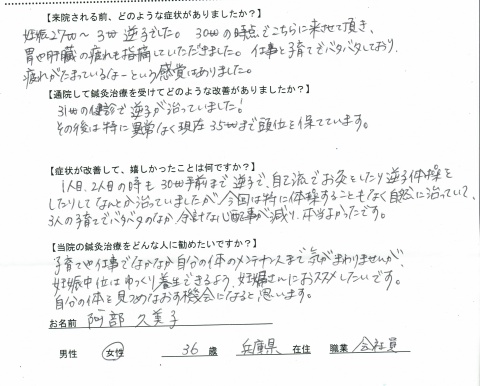 【来院される前、どのような症状がありましたか?】
妊娠27w~31w 逆子でした。30wの時点でこちらに来させて頂き、
胃や肝臓の疲れも指摘していただきました。仕事と子育てでバタバタしており、
疲れがたまっているなーという感覚はありました。
【通院して鍼灸治療を受けてどのような改善がありましたか?】
31wの健診で逆子が治っていました!
その後は特に異常なく現在35wまで頭位を保てています。
【症状が改善して、嬉しかったことは何ですか?】
1人目、2人目の時も30w手前まで逆子で、自己流でお灸をしたり逆子体操を
したりしてなんとか治っていましたが、今回は特に体操することもなく自然に治っていて、
3人の子育てでバタバタのなか、余計な心配事が減り、本当よかったです。
【当院の鍼灸治療をどんな人に勧めたいですか?】
子育てや仕事でなかなか自分の体のメンテナンスまで気がまわりませんが、
妊娠中位はゆっくり養生できるよう、妊婦さんにおススメしたいです。
自分の体を見つめなおす機会になると思います。
お名前 阿部 久美子
男性 女性 36 歳 兵庫県 在住 職業 会社員